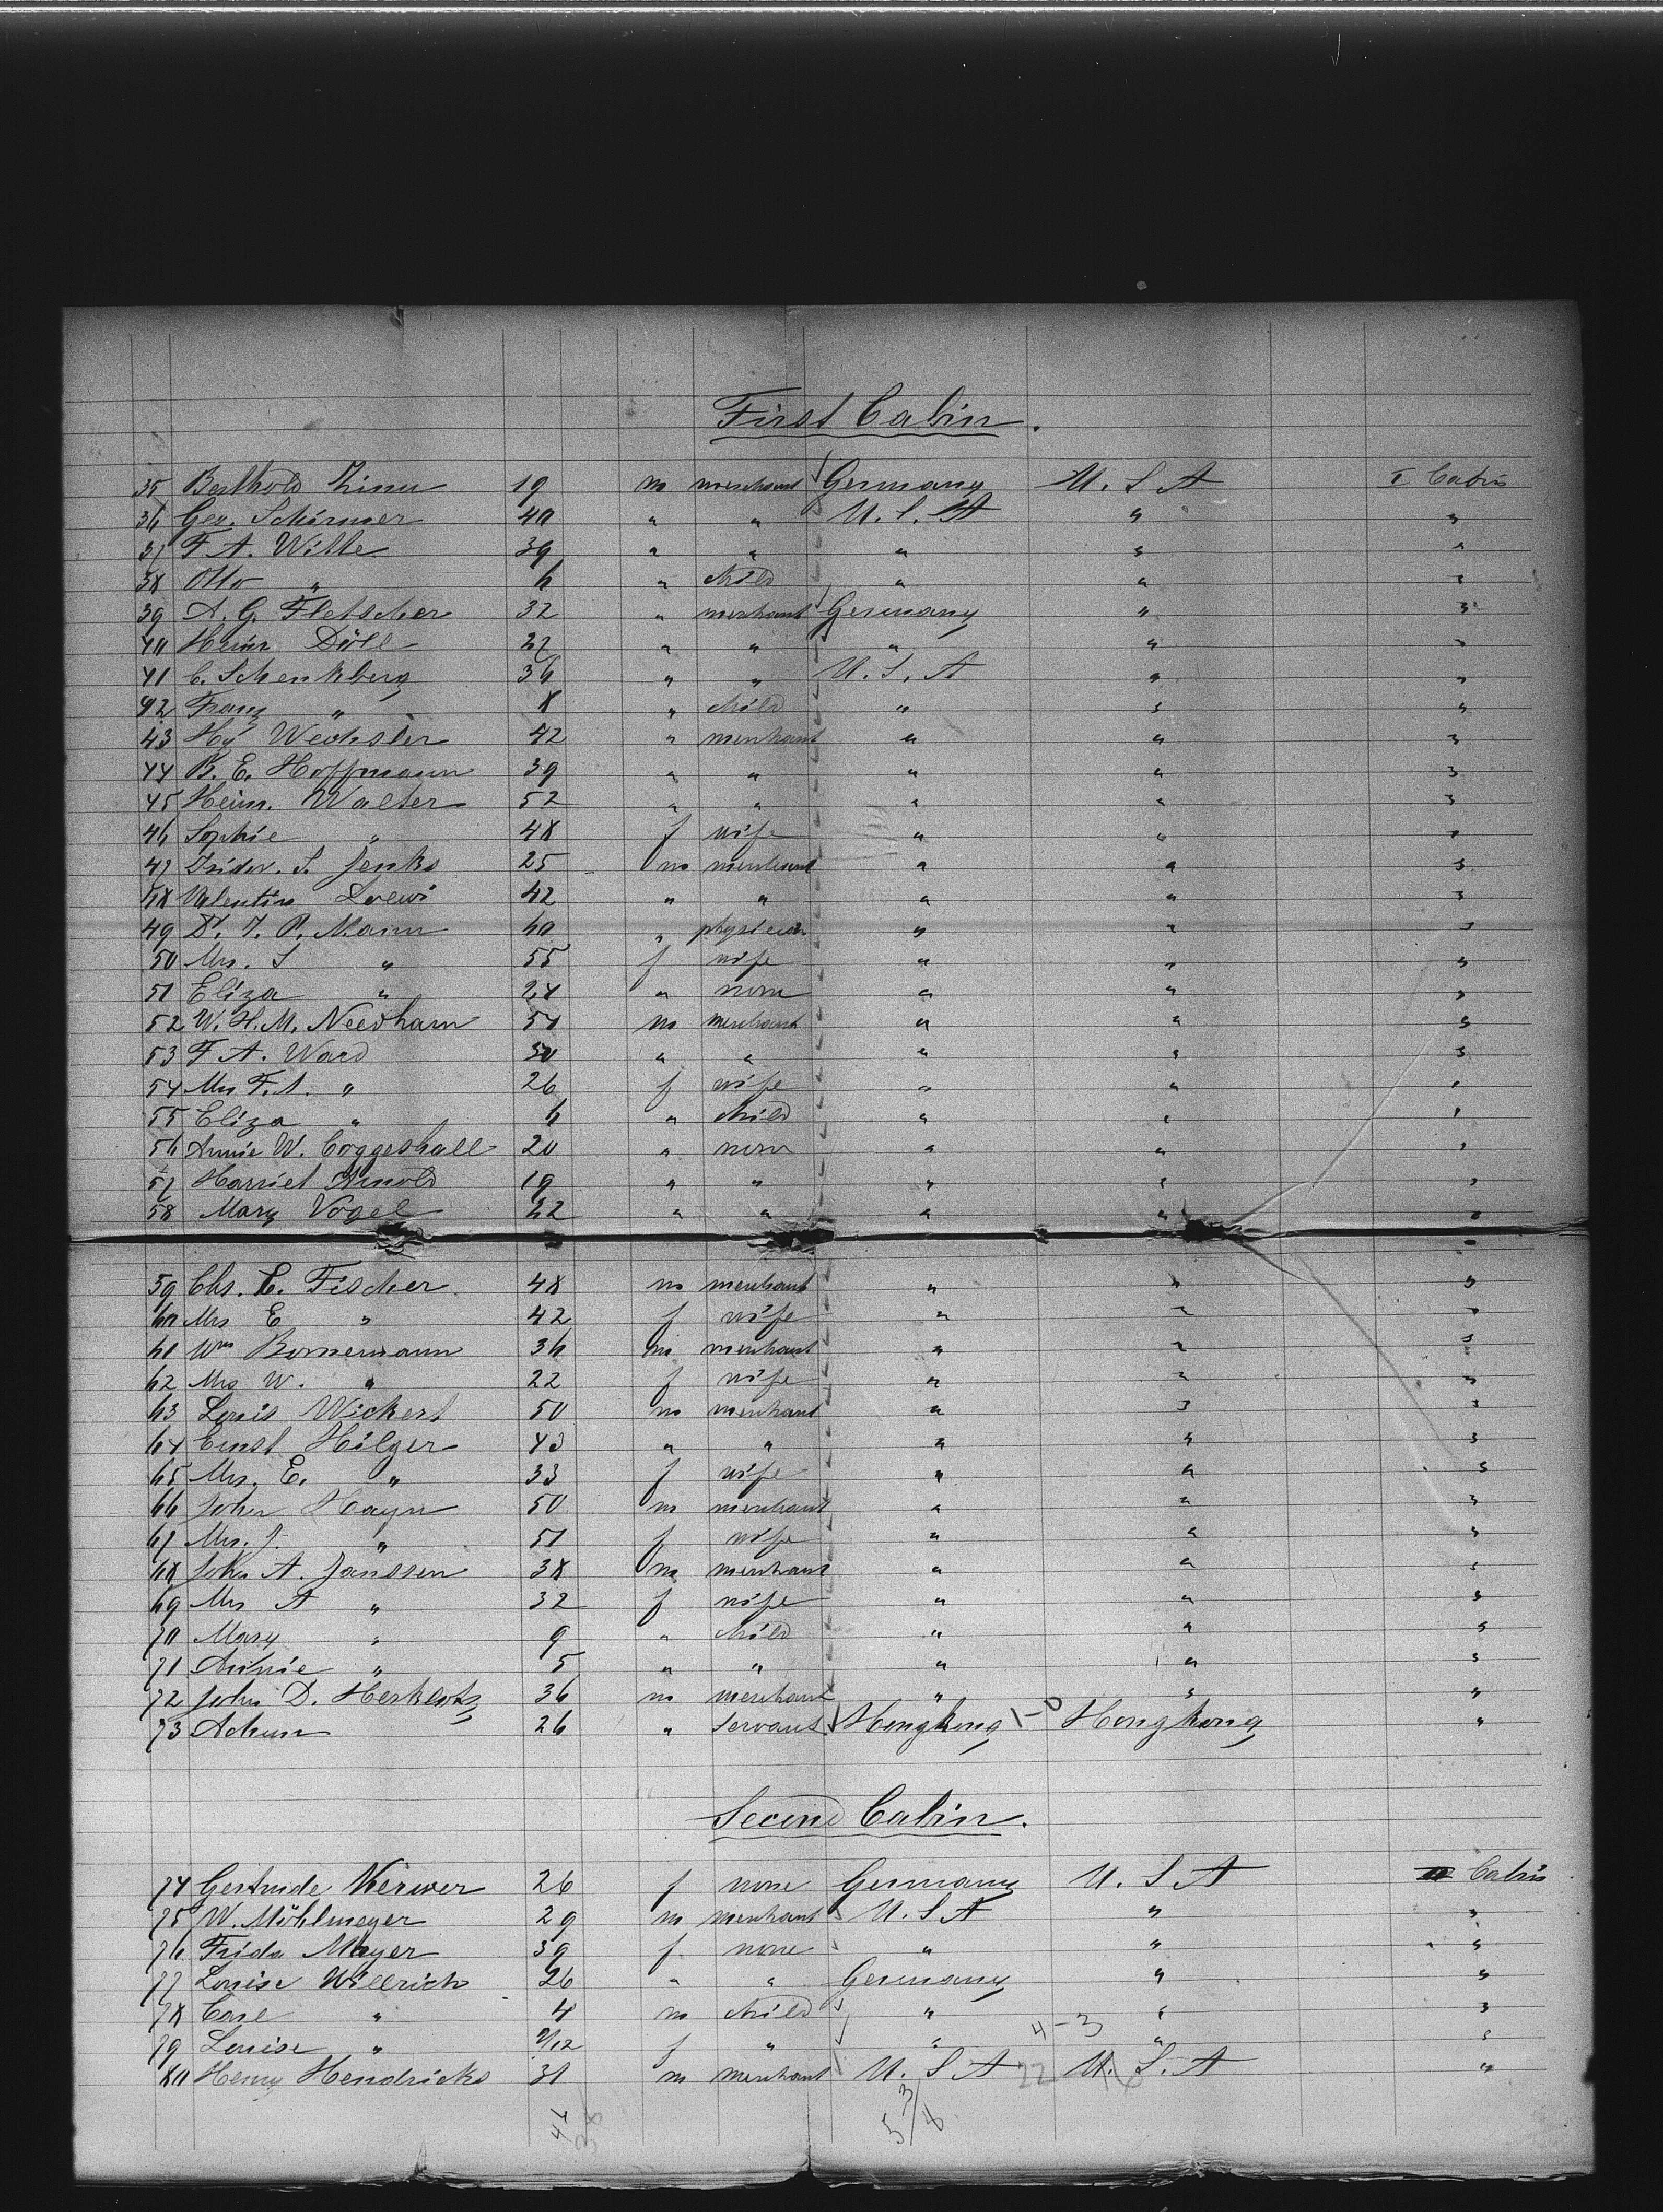 First Cabin.
35 Berthold Zinn 19 m merchant Germany U. S A I Cabin
36 Geo. Schirmer 40 " " U. S. A " "
37 F A. Witte 39 " " " " "
38 Otto " 6 " child " " "
39 A. G. Fletscher 32 " merchant Germany " "
40 Heinr Döll 22 " " " " "
41 C. Schenkberg 36 " " U. S. A " "
42 Franz " 8 " child " " "
43 Hy Wechsler 42 " merchant " " "
44 B. E. Hoffmann 39 " " " " "
45 Heinr. Walter 52 " " " " "
46 Sophie " 48 f wife " " "
47 Isidor. S. Jenks 25 m merchant " " "
48 Valentin Loewi 42 " " " " "
49 Dr. J. P. Mann 60 " physician " " "
50 Mrs. S " 55 f wife " " "
51 Eliza " 24 " none " " "
52 W. H. M. Needham 51 m merchant " " "
53 F A. Ward 30 " " " " "
54 Mrs F. A. " 26 f wife " " "
55 Eliza " 6 " child " " "
56 Annie W. Coggeshall 20 " none " " "
57 Harriet Arnold 19 " " " " "
58 Mary Vogel 22 " " " " "
59 Chs. E. Fischer 48 m merchant " " "
60 Mrs E " 42 f wife " " "
61 Wm Bornemann 36 m merchant " " "
62 Mrs W. " 22 f wife " " "
63 Louis Wickert 50 m merchant " " "
64 Ernst Hilger 43 " " " " "
65 Mrs. E. " 33 f wife " " "
66 John Hayn 50 m merchant " " "
67 Mrs. J. " 51 f wife " " "
68 John A. Janssen 38 m merchant " " "
69 Mrs A " 32 f wife " " "
70 Mary " 9 " child " " "
71 Annie " 5 " " " " "
72 John D. Herklotz 36 m merchant " " "
73 Achun 26 " servant Hongkong 1-0 Hongkong "
Second Cabin.
74 Gertrude Kerwer 26 f none Germany U. S A II Cabin
75 W. Möhlmeyer 29 m merchant U. S A " "
76 Frida Mayer 39 f none " " "
77 Louise Willrich 26 " " Germany " "
78 Carl " 4 m child " " "
79 Louise " 9/12 f " " 4-3 " "
80 Henry Hendricks 31 m merchant U. S A 22 U. S. A "